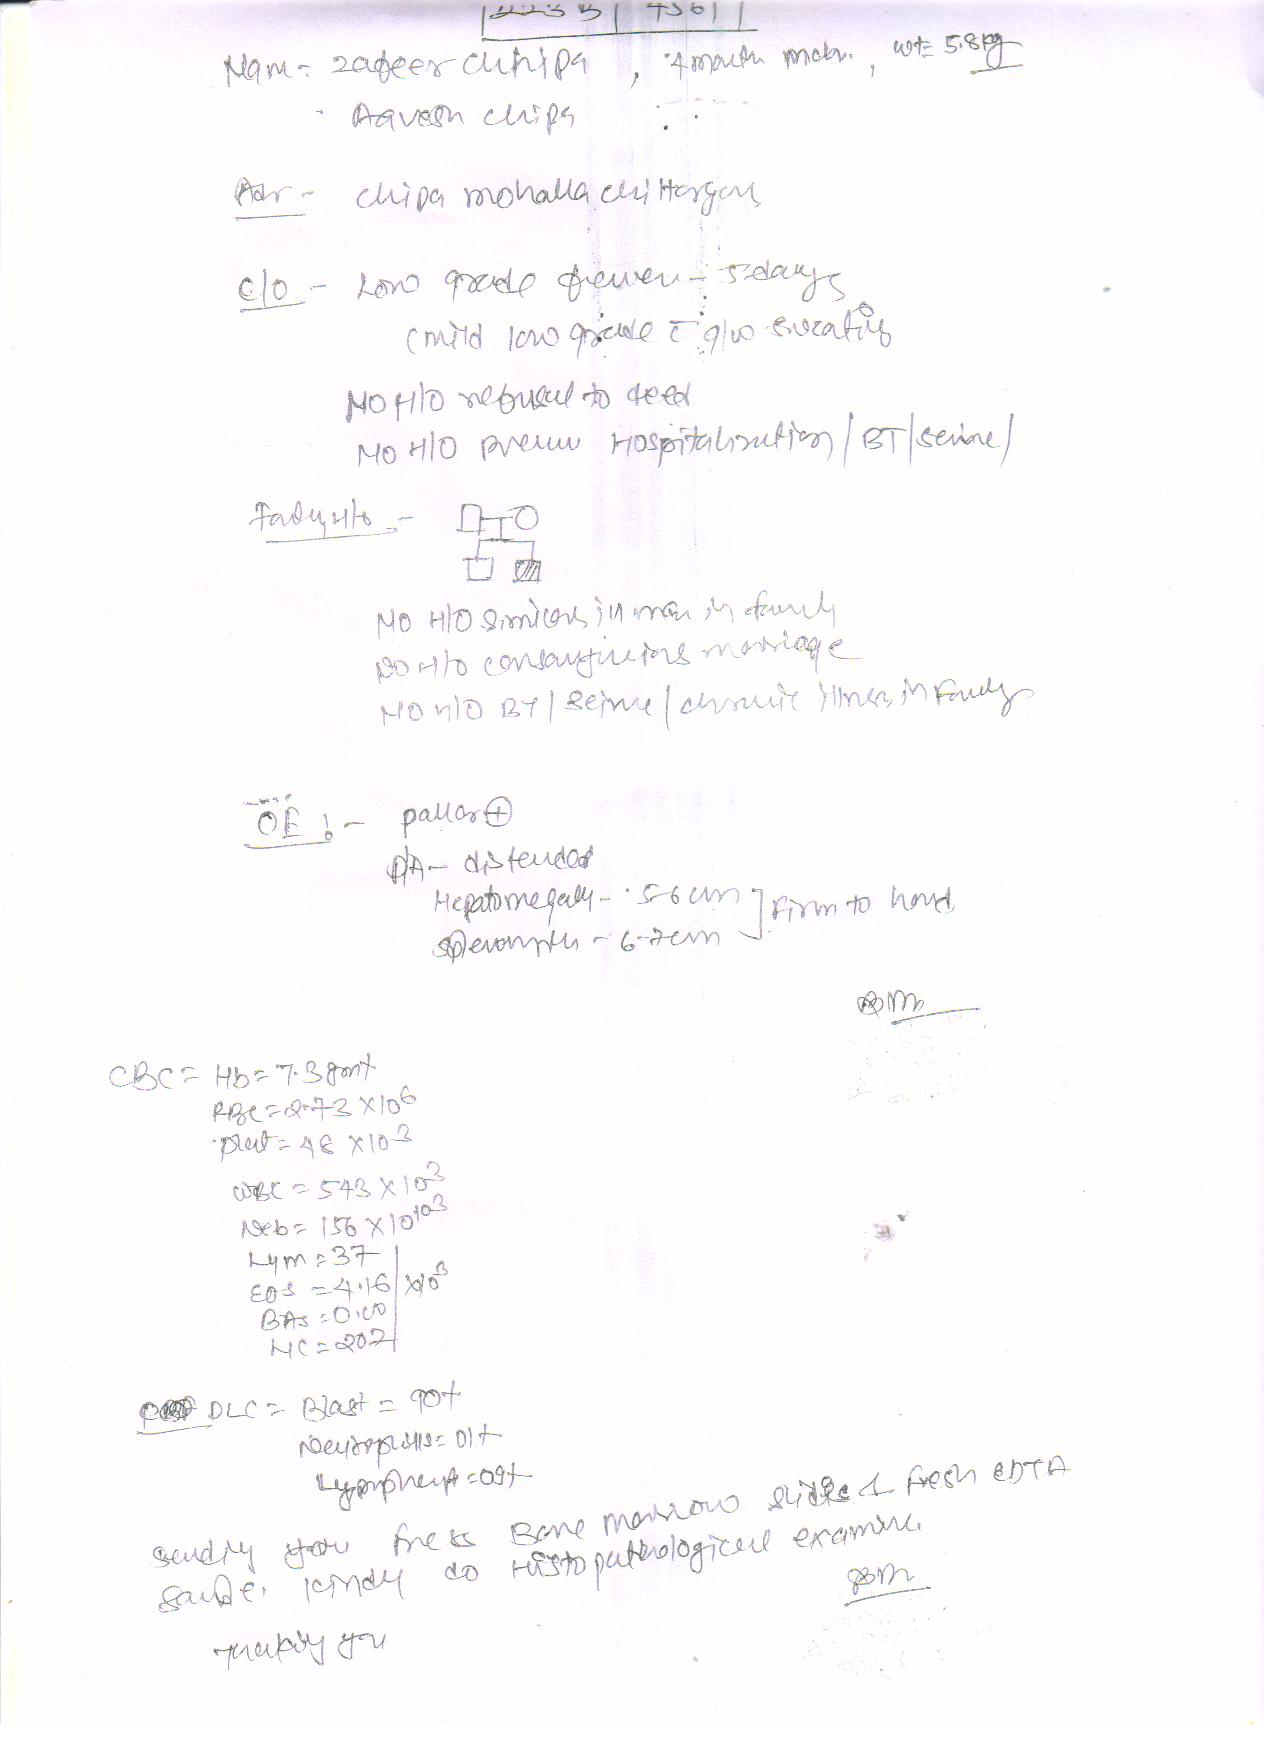 Nam - zafeer chhipa, 4 month mch., wt = 5.8 kg
Aavesh chipa
Adr - chipa mohalla chittorgarh
C/O - Low grade fewer - 5 days
(mild low grade c̄ g/w sweating
NO H/O refusal to feed
NO H/O previu Hospitalization / BT / seizure /
Family H/o -
NO H/O similar illness in family
NO H/o consanguineous marriage
NO H/O BT / seizure / chronic illness in Family
OE :- pallor ⊕
P/A - distended
Hepatomegaly - 5-6 cm ] Firm to hard
splenomegaly - 6-7 cm
CBC = Hb = 7.3 gm%
RBC = 2.73 × 10⁶
plat = 48 × 10³
WBC = 543 × 10³
Neu = 156 × 10³
Lym = 37
EOS = 4.16 × 10³
BAS = 0.00
DLC = Blast = 90%
Neutrophills = 01%
Lymphocyt = 09%
sending you fress Bone marrow slides & fresh EDTA
sample. kindly do Histopathological examine.
Thanking you